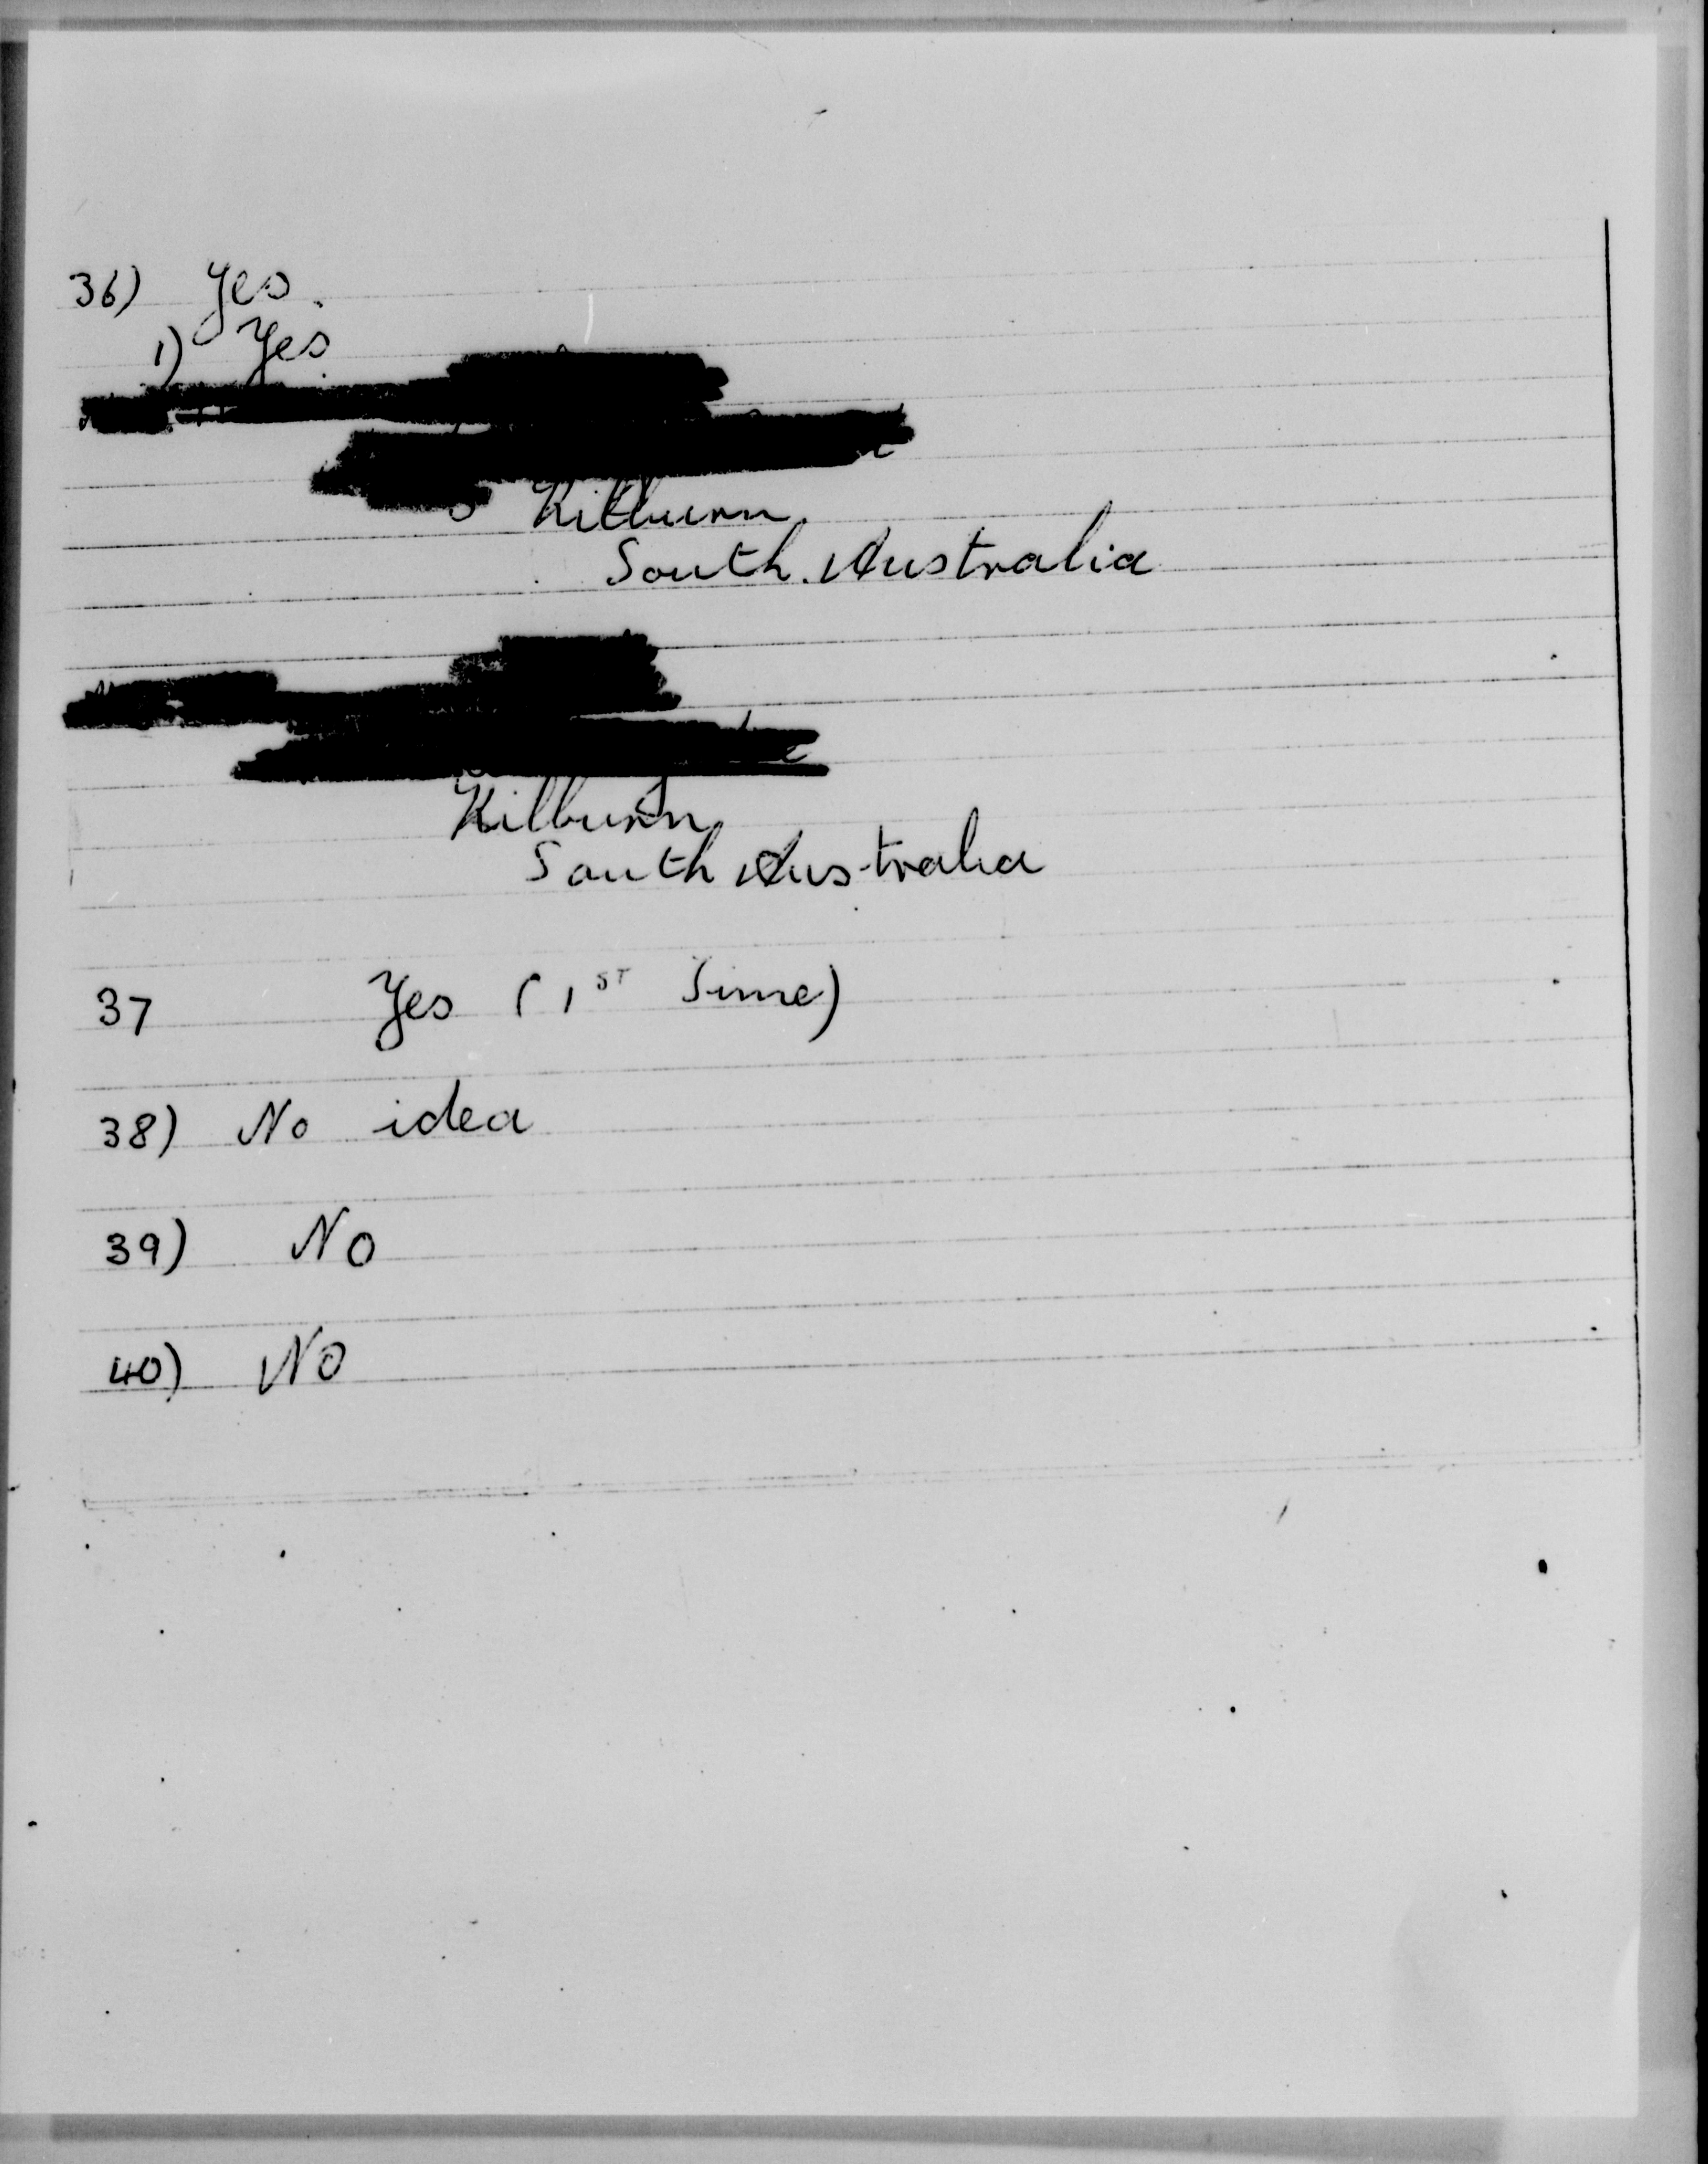 36) Yes.
1) Yes.
Kilburn
South Australia
Kilburn
South Australia
37 Yes (1ST Time)
38) No idea
39) No
40) No